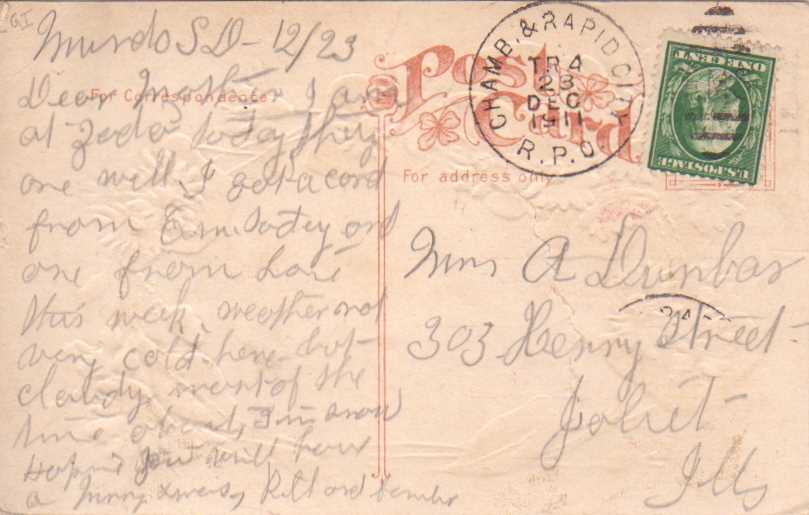 Murdo S.D - 12/23
Dear Mother I am
at Zedo today they
are well I got a card
from Em today and
one from
this week, weather not
very cold here but
cloudy most of the
time about, snow
Hoping you will have
a merry xmas, and
For Correspondence
Post Card
For address only
CHAMB. & RAPID CITY
TR 4
23
DEC
1911
R.P.O
U.S. POSTAGE
ONE CENT
Mrs A Dunbar
303 Henry Street
Joliet
Ills